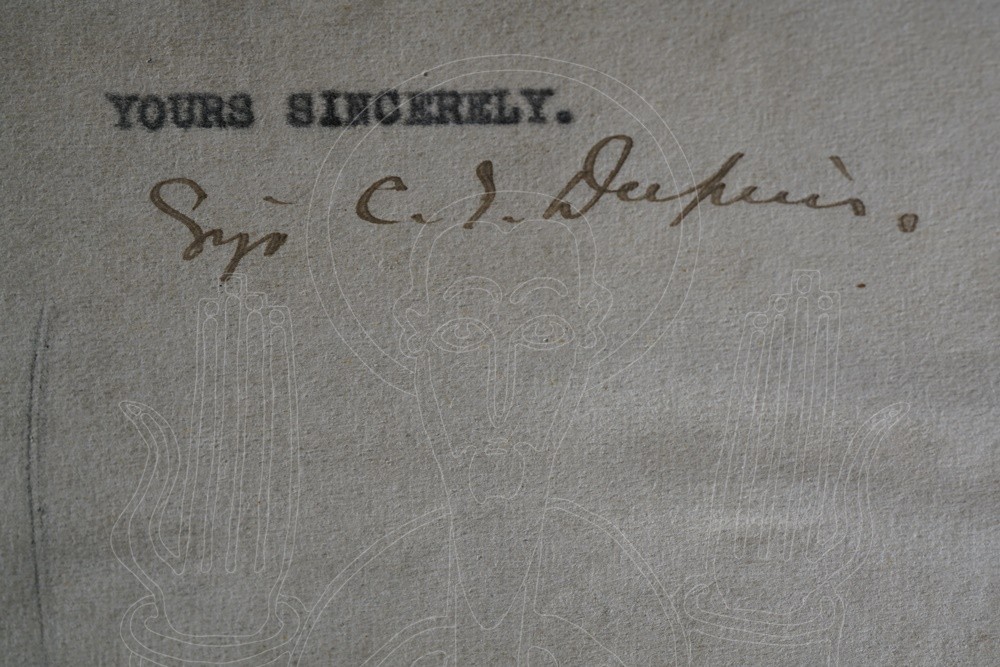 YOURS SINCERELY.
Sgd C. E. Dupuis.